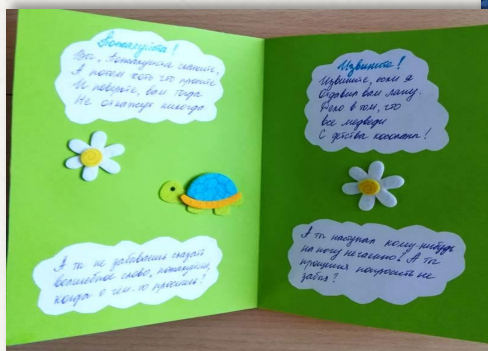 Пожалуйста!
Вы, пожалуйста скажите,
А потом хоть что просите
И поверьте, вам тогда
Не откажут никогда
А ты не забываешь сказать
волшебное слово, пожалуйста,
когда о чём-то просишь?
Извините!
Извините, если я
Отдавил вам лапу.
Дело в том, что
все медведи
С детства косолапы!
А ты наступал кому-нибудь
на ногу нечаянно? А ты
прощения попросить не
забыл?